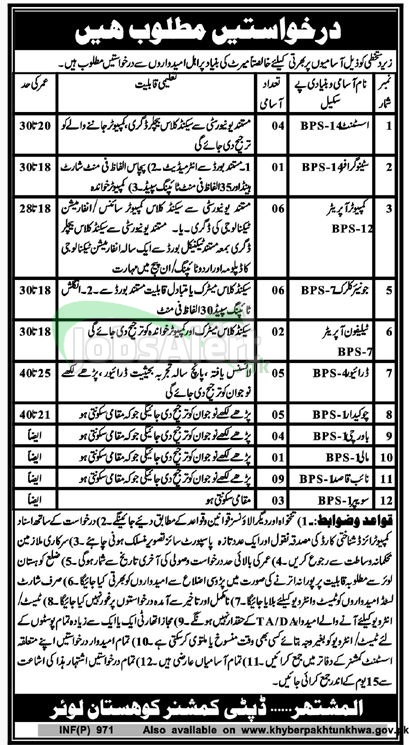 درخواستیں مطلوب ھیں
زیر دستخطی کو ذیل آسامیوں پر بھرتی کیلئے خالصتاً میرٹ کی بنیاد پر اہل امیدواروں سے درخواستیں مطلوب ہیں۔
نمبر شمار نام آسامی و بنیادی پے سکیل تعداد آسامی تعلیمی قابلیت عمر کی حد
1 اسسٹنٹ BPS-14 04 مستند یونیورسٹی سے سیکنڈ کلاس بیچلر ڈگری، کمپیوٹر جاننے والے کو ترجیح دی جائے گی 20تا30
2 سٹینوگرافر BPS-14 01 1۔ مستند بورڈ سے انٹرمیڈیٹ۔ 2) پچاس الفاظ فی منٹ شارٹ ہینڈ اور 35 الفاظ فی منٹ ٹائپنگ سپیڈ۔ 3) کمپیوٹر خواندہ 18تا30
3 کمپیوٹر آپریٹر BPS-12 06 مستند یونیورسٹی سے سیکنڈ کلاس کمپیوٹر سائنس / انفارمیشن ٹیکنالوجی کی ڈگری۔ یا۔ مستند یونیورسٹی سے سیکنڈ کلاس بیچلر ڈگری بمعہ مستند ٹیکنیکل بورڈ سے ایک سالہ انفارمیشن ٹیکنالوجی کا ڈپلومہ اور اردو ٹائپنگ / ان پیج میں مہارت 18تا28
5 جونیئر کلرک BPS-7 06 سیکنڈ کلاس میٹرک یا متبادل قابلیت مستند بورڈ سے۔ 2۔ انگلش ٹائپنگ سپیڈ 30 الفاظ فی منٹ 18تا30
6 ٹیلیفون آپریٹر BPS-7 02 سیکنڈ کلاس میٹرک اور کمپیوٹر خواندہ کو ترجیح دی جائے گی 18تا30
7 ڈرائیور BPS-4 05 لائسنس یافتہ، پانچ سالہ تجربہ بحیثیت ڈرائیور، پڑھے لکھے نوجوان کو ترجیح دی جائے گی 25تا40
8 چوکیدار BPS-1 05 پڑھے لکھے نوجوان کو ترجیح دی جائیگی جو کہ مقامی سکونتی ہو 21تا40
9 باورچی BPS-1 04 پڑھے لکھے نوجوان کو ترجیح دی جائیگی جو کہ مقامی سکونتی ہو ایضاً
10 مالی BPS-1 01 پڑھے لکھے نوجوان کو ترجیح دی جائیگی جو کہ مقامی سکونتی ہو ایضاً
11 نائب قاصد BPS-1 09 پڑھے لکھے نوجوان کو ترجیح دی جائیگی جو کہ مقامی سکونتی ہو ایضاً
12 سویپر BPS-1 03 مقامی سکونتی ہو ایضاً
قواعد و ضوابط:۔ 1) تنخواہ اور دیگر الاؤنسز قوانین و قواعد کے مطابق دیئے جائینگے۔ 2) درخواست کے ساتھ اسناد
کمپیوٹرائزڈ شناختی کارڈ کی مصدقہ نقول اور ایک عدد تازہ پاسپورٹ سائز تصویر منسلک ہونی چاہئے۔ 3) سرکاری ملازمین
محکمانہ وساطت سے رجوع کریں۔ 4) عمر کی بالائی حد درخواست وصولی کی آخری تاریخ سے شمار ہوگی۔ 5) ضلع کوہستان
لوئر سے مطلوبہ قابلیت پر پورا نہ اترنے کی صورت میں پڑوسی اضلاع سے امیدواروں کو بھرتی کیا جائیگا۔ 6) صرف شارٹ
لسٹڈ امیدواروں کو ٹیسٹ و انٹرویو کیلئے بلایا جائیگا۔ 7) نامکمل اور تاخیر سے آمدہ درخواستوں پر غور نہیں کیا جائیگا۔ 8) ٹیسٹ/
انٹرویو کیلئے آنے والے امیدوار TA/DA کے حقدار نہیں ہونگے۔ 9) مجاز اتھارٹی ایک یا ایک سے زیادہ تمام پوسٹوں کے
لئے ٹیسٹ / انٹرویو کو بغیر وجہ بتائے کسی بھی وقت منسوخ یا ملتوی کر سکتی ہے۔ 10) تمام امیدوار درخواستیں اپنے متعلقہ
اسسٹنٹ کمشنر کے دفاتر میں جمع کرائیں۔ 11) تمام آسامیاں عارضی ہیں۔ 12) تمام درخواستیں اشتہار ہذا کی اشاعت
سے 15 یوم کے اندر جمع کرائی جائیں۔
المشتھر...... ڈپٹی کمشنر کوھستان لوئر
INF(P) 971 Also available on www.khyberpakhtunkhwa.gov.pk
JobsAlert.pk